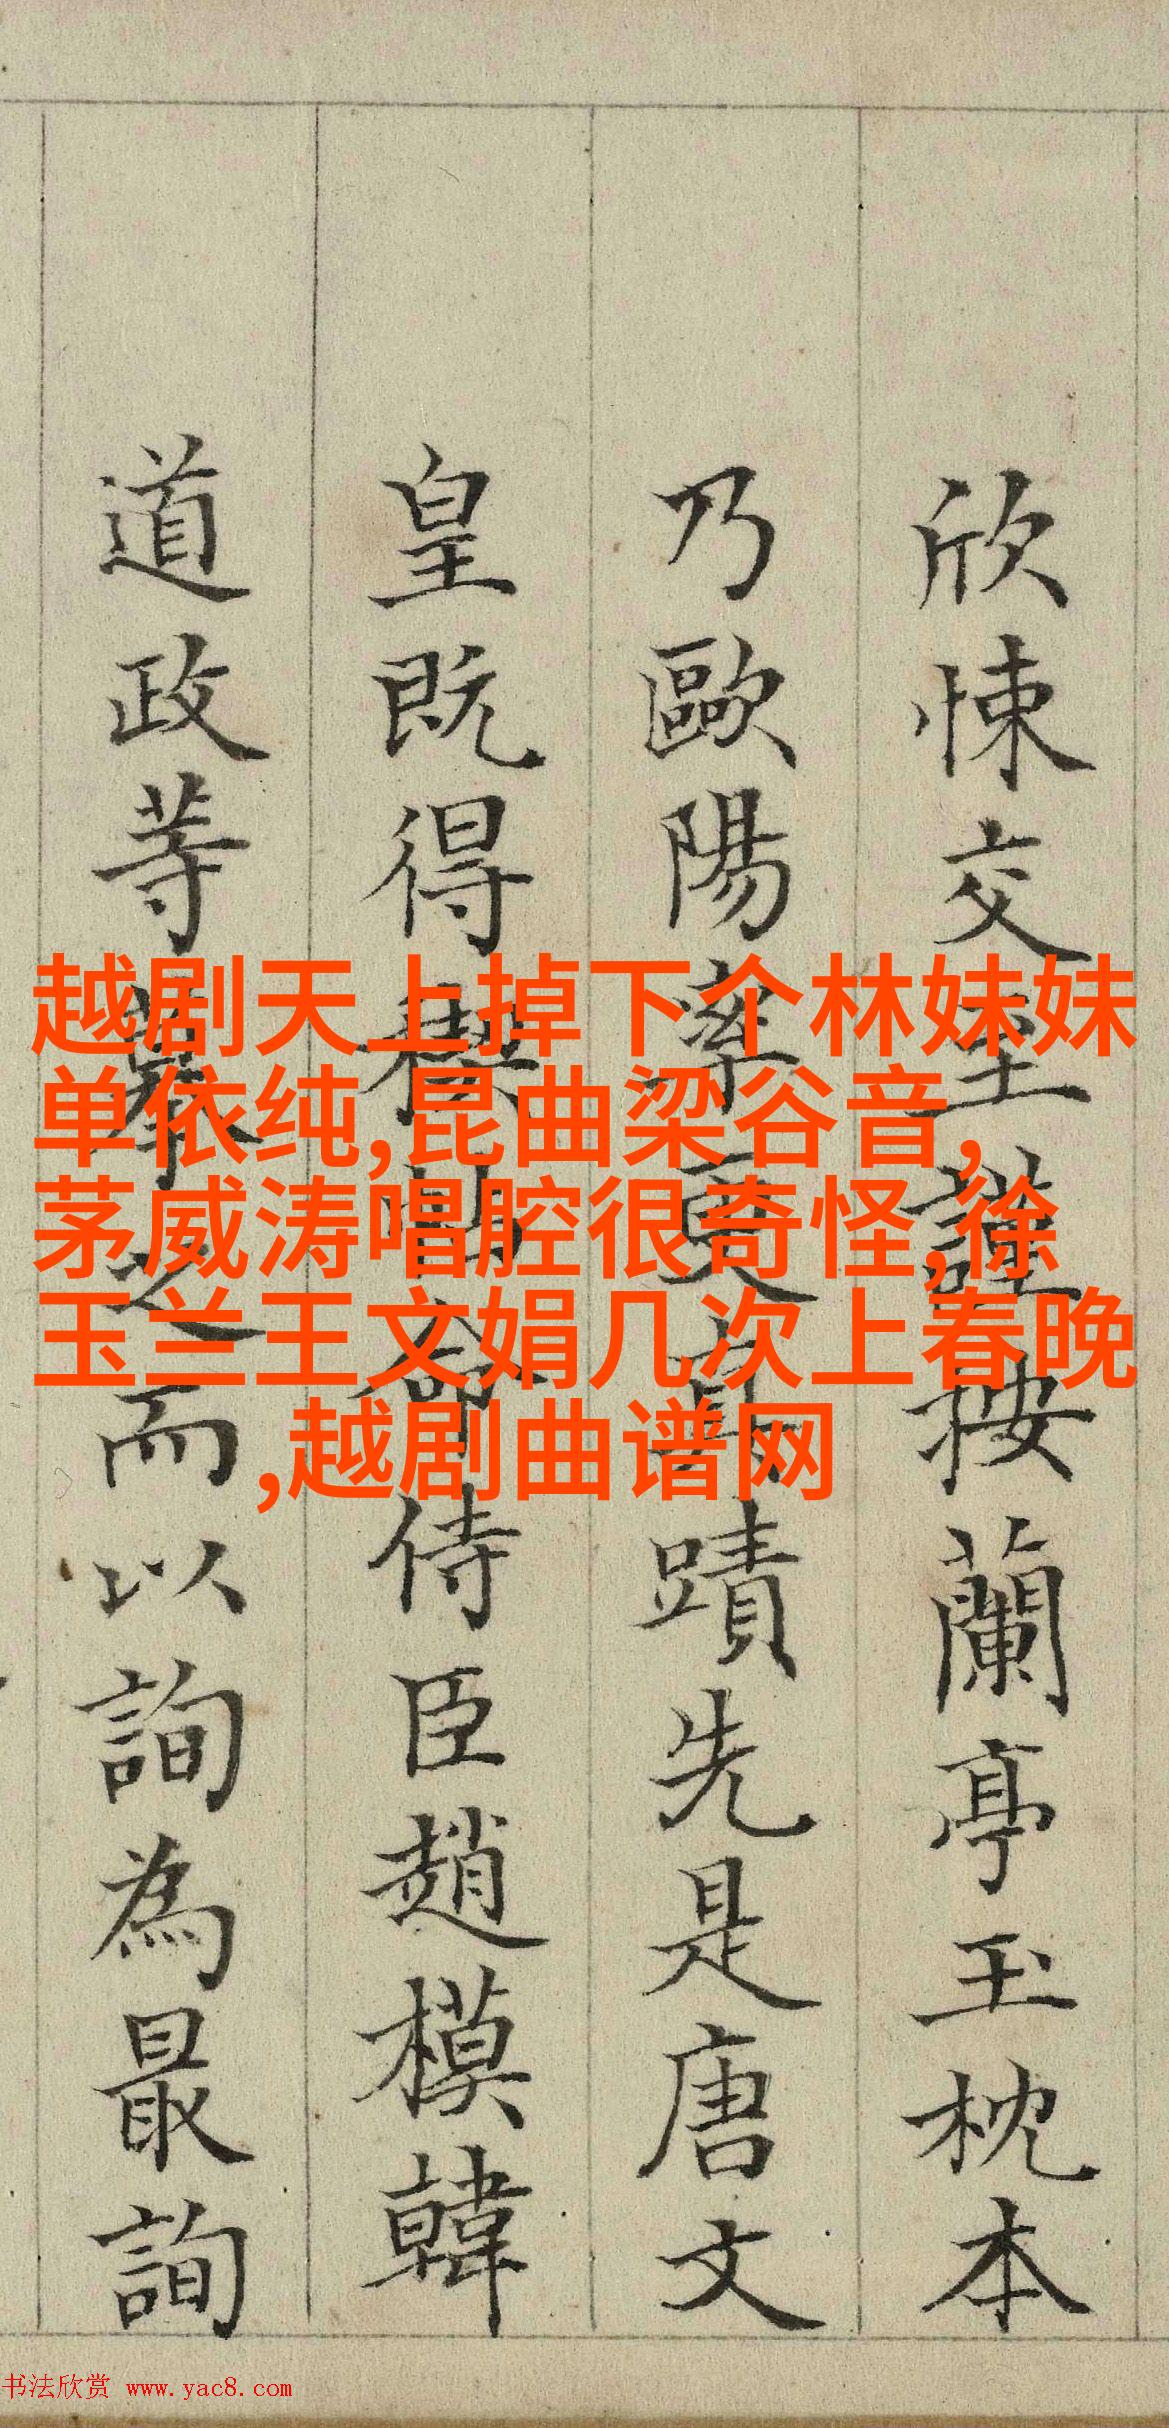 欣悚交至謹按蘭亭玉枕本
乃歐陽率更真蹟先是唐文
皇既得禊帖命侍臣趙模韓
道政等摹之而以詢為最詢
越剧天上掉下个林妹妹
单依纯,昆曲梁谷音,
茅威涛唱腔很奇怪,徐
玉兰王文娟几次上春晚
,越剧曲谱网
书法欣赏 www.yac8.com